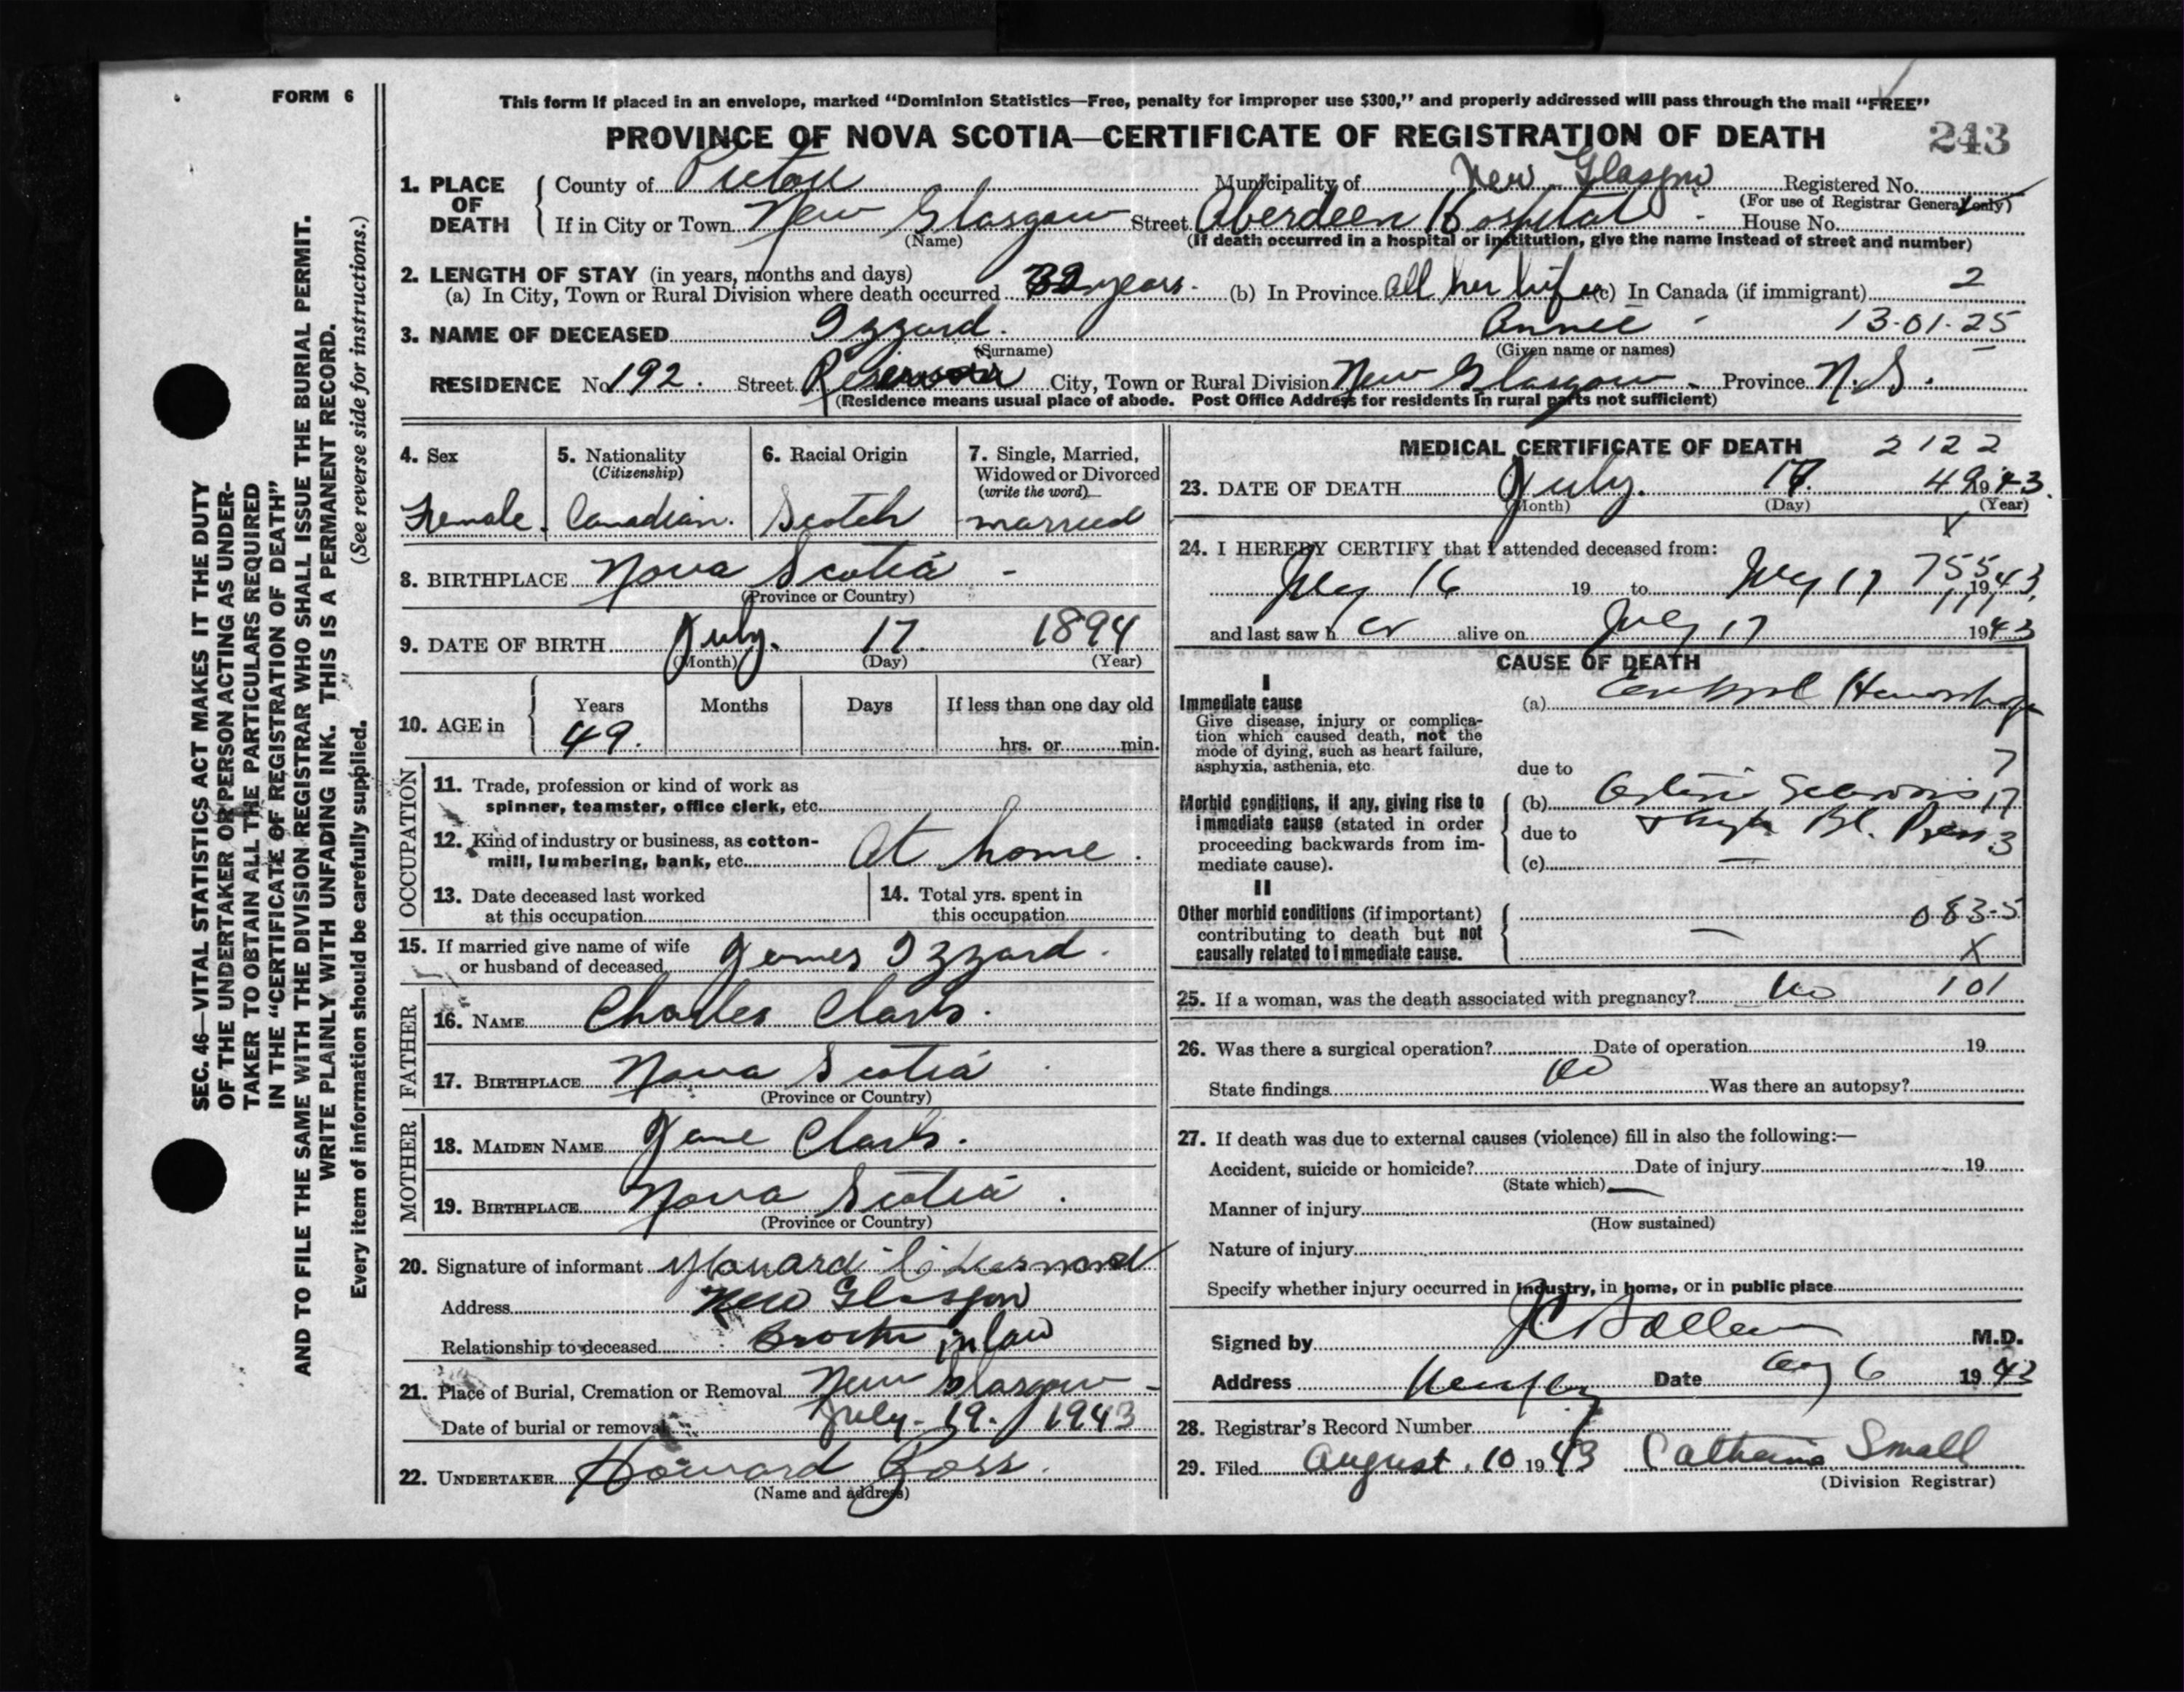 FORM 6
This form if placed in an envelope, marked "Dominion Statistics—Free, penalty for improper use $300," and properly addressed will pass through the mail "FREE"
PROVINCE OF NOVA SCOTIA—CERTIFICATE OF REGISTRATION OF DEATH 243
1. PLACE OF DEATH County of Pictou Municipality of New Glasgow Registered No.
(For use of Registrar General only)
If in City or Town New Glasgow Street Aberdeen Hospital House No.
(Name) (If death occurred in a hospital or institution, give the name instead of street and number)
2. LENGTH OF STAY (in years, months and days)
(a) In City, Town or Rural Division where death occurred 32 years. (b) In Province All her life (c) In Canada (if immigrant) 2
3. NAME OF DECEASED Izzard. Annie 13-01-25
(Surname) (Given name or names)
RESIDENCE No. 192. Street Reservoir City, Town or Rural Division New Glasgow Province N.S.
(Residence means usual place of abode. Post Office Address for residents in rural parts not sufficient)
4. Sex Female.
5. Nationality (Citizenship) Canadian.
6. Racial Origin Scotch
7. Single, Married, Widowed or Divorced (write the word) married
8. BIRTHPLACE Nova Scotia
(Province or Country)
9. DATE OF BIRTH July. 17. 1894
(Month) (Day) (Year)
10. AGE in Years Months Days If less than one day old
49. hrs. or min.
OCCUPATION
11. Trade, profession or kind of work as
spinner, teamster, office clerk, etc.
12. Kind of industry or business, as cotton-
mill, lumbering, bank, etc. At home.
13. Date deceased last worked at this occupation
14. Total yrs. spent in this occupation
15. If married give name of wife
or husband of deceased James Izzard.
FATHER
16. NAME Charles Clark.
17. BIRTHPLACE Nova Scotia
(Province or Country)
MOTHER
18. MAIDEN NAME Jane Clark.
19. BIRTHPLACE Nova Scotia.
(Province or Country)
20. Signature of informant Howard
Address New Glasgow
Relationship to deceased Brother in law
21. Place of Burial, Cremation or Removal New Glasgow
Date of burial or removal July. 19. 1943
22. UNDERTAKER Howard Ross.
(Name and address)
MEDICAL CERTIFICATE OF DEATH 2122
23. DATE OF DEATH July. 17. 49 1943.
(Month) (Day) (Year)
24. I HEREBY CERTIFY that I attended deceased from:
July 16 19 to July 17 755 1943
and last saw her alive on July 17 1943
CAUSE OF DEATH
I
Immediate cause
Give disease, injury or complica-
tion which caused death, not the
mode of dying, such as heart failure,
asphyxia, asthenia, etc.
(a) Cerebral Hemorrhage
due to 7
Morbid conditions, if any, giving rise to
immediate cause (stated in order
proceeding backwards from im-
mediate cause).
(b) Arterio Sclerosis 17
due to + High Bl. Press 3
(c) —
II
Other morbid conditions (if important)
contributing to death but not
causally related to immediate cause.
083-5
—
X
25. If a woman, was the death associated with pregnancy? No 101
26. Was there a surgical operation? Date of operation 19
State findings No Was there an autopsy?
27. If death was due to external causes (violence) fill in also the following:—
Accident, suicide or homicide? Date of injury 19
(State which) —
Manner of injury
(How sustained)
Nature of injury
Specify whether injury occurred in industry, in home, or in public place
Signed by M.D.
Address Date Aug 6 1943
28. Registrar's Record Number
29. Filed August. 10 1943 Catherine Small
(Division Registrar)
SEC. 46—VITAL STATISTICS ACT MAKES IT THE DUTY
OF THE UNDERTAKER OR PERSON ACTING AS UNDER-
TAKER TO OBTAIN ALL THE PARTICULARS REQUIRED
IN THE "CERTIFICATE OF REGISTRATION OF DEATH"
AND TO FILE THE SAME WITH THE DIVISION REGISTRAR WHO SHALL ISSUE THE BURIAL PERMIT.
WRITE PLAINLY WITH UNFADING INK. THIS IS A PERMANENT RECORD.
Every item of information should be carefully supplied. (See reverse side for instructions.)